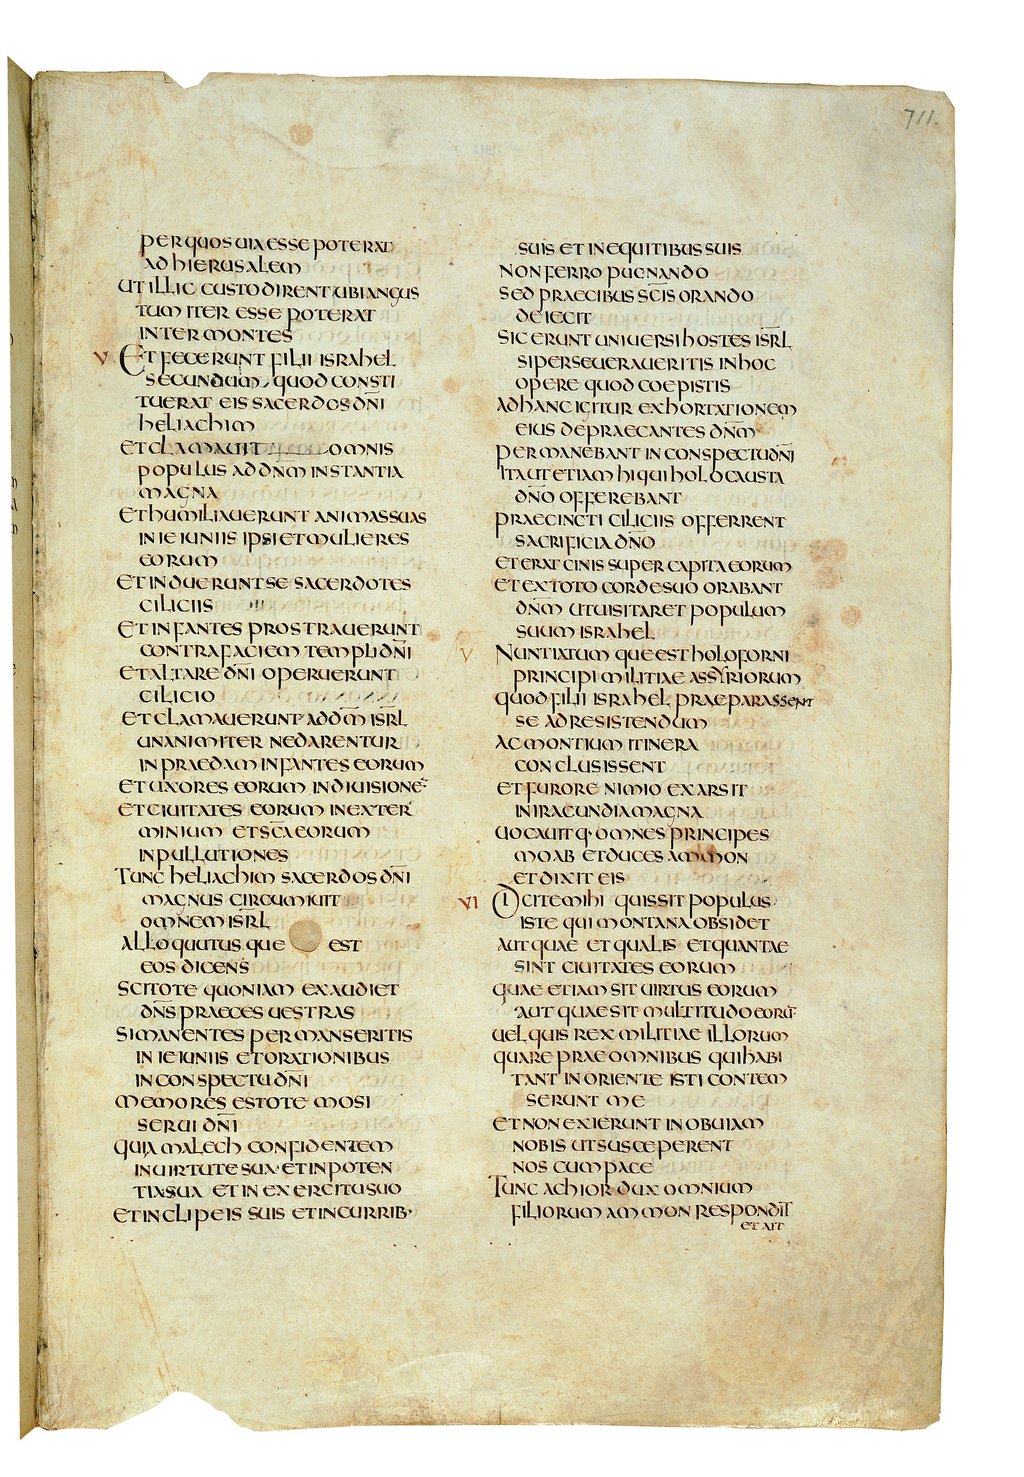 711.
PER QUOS UIA ESSE POTERAT
AD HIERUSALEM
UT ILLIC CUSTODIRENT UBI ANGUS
TUM ITER ESSE POTERAT
INTER MONTES
V ET FECERUNT FILII ISRAHEL
SECUNDUM QUOD CONSTI
TUERAT EIS SACERDOS DN̄I
HELIACHIM
ET CLAMAUIT OMNIS
POPULUS AD DN̄M INSTANTIA
MAGNA
ET HUMILIAUERUNT ANIMAS SUAS
IN IEIUNIIS IPSI ET MULIERES
EORUM
ET INDUERUNT SE SACERDOTES
CILICIIS
ET INFANTES PROSTRAUERUNT
CONTRA FACIEM TEMPLI DN̄I
ET ALTARE DN̄I OPERUERUNT
CILICIO
ET CLAMAUERUNT AD DN̄M ISRL̄
UNANIMITER NE DARENTUR
IN PRAEDAM INFANTES EORUM
ET UXORES EORUM IN DIUISIONĒ
ET CIUITATES EORUM IN EXTER
MINIUM ET SC̄A EORUM
IN PULLUTIONES
TUNC HELIACHIM SACERDOS DN̄I
MAGNUS CIRCUMIUIT
OMNEM ISRL̄
ALLOQUUTUSQUE EST
EOS DICENS
SCITOTE QUONIAM EXAUDIET
DN̄S PRAECES UESTRAS
SI MANENTES PERMANSERITIS
IN IEIUNIIS ET ORATIONIBUS
IN CONSPECTU DN̄I
MEMORES ESTOTE MOSI
SERUI DN̄I
QUIA MALECH CONFIDENTEM
IN UIRTUTE SUA ET IN POTEN
TIA SUA ET IN EXERCITU SUO
ET IN CLIPEIS SUIS ET IN CURRIB·
SUIS ET IN EQUITIBUS SUIS
NON FERRO PUGNANDO
SED PRAECIBUS SC̄IS ORANDO
DEIECIT
SIC ERUNT UNIUERSI HOSTES ISRL̄
SI PERSEUERAUERITIS IN HOC
OPERE QUOD COEPISTIS
AD HANC IGITUR EXHORTATIONEM
EIUS DEPRAECANTES DN̄M
PERMANEBANT IN CONSPECTU DN̄I
ITAUT ETIAM HI QUI HOLOCAUSTA
DN̄O OFFEREBANT
PRAECINCTI CILICIIS OFFERRENT
SACRIFICIA DN̄O
ET ERAT CINIS SUPER CAPITA EORUM
ET EX TOTO CORDE SUO ORABANT
DN̄M UT UISITARET POPULUM
SUUM ISRAHEL
V NUNTIATUMQUE EST HOLOFORNI
PRINCIPI MILITIAE ASSYRIORUM
QUOD FILII ISRAHEL PRAEPARASSENT
SE AD RESISTENDUM
AC MONTIUM ITINERA
CONCLUSISSENT
ET FURORE NIMIO EXARSIT
IN IRACUNDIA MAGNA
UOCAUITQ· OMNES PRINCIPES
MOAB ET DUCES AMMON
ET DIXIT EIS
VI DICITE MIHI QUIS SIT POPULUS
ISTE QUI MONTANA OBSIDET
AUT QUAE ET QUALIS ET QUANTAE
SINT CIUITATES EORUM
QUAE ETIAM SIT UIRTUS EORUM
AUT QUAE SIT MULTITUDO EORŪ·
UEL QUIS REX MILITIAE ILLORUM
QUARE PRAE OMNIBUS QUI HABI
TANT IN ORIENTE ISTI CONTEM
SERUNT ME
ET NON EXIERUNT IN OBUIAM
NOBIS UT SUSCEPERENT
NOS CUM PACE
TUNC ACHIOR DUX OMNIUM
FILIORUM AMMON RESPONDIT
ET AIT